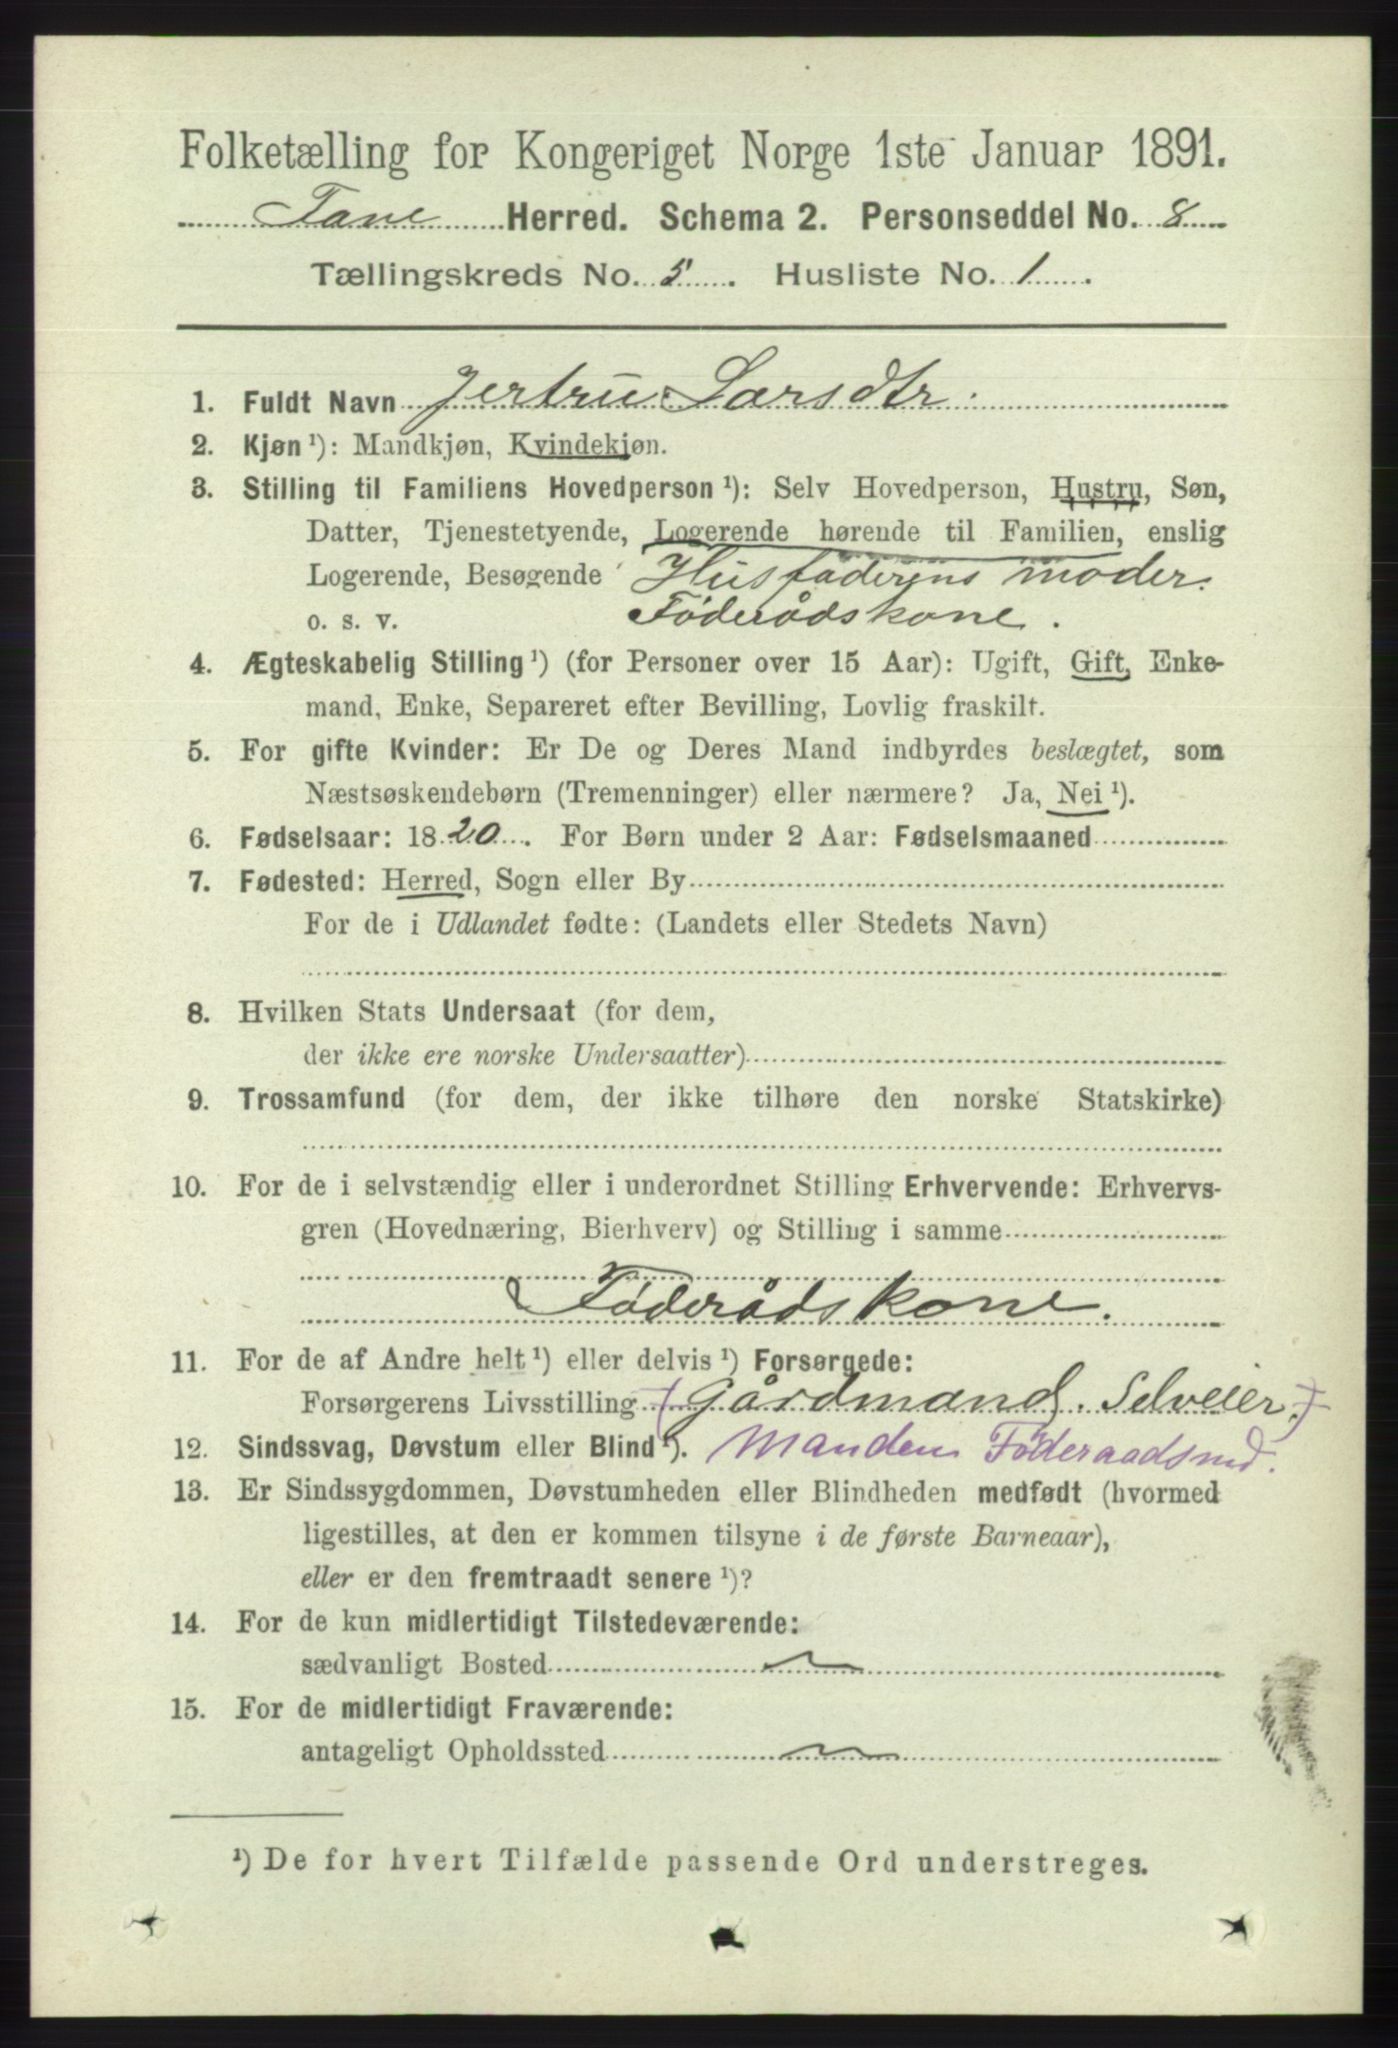 Folketælling for Kongeriget Norge 1ste Januar 1891.
Fane Herred. Schema 2. Personseddel No. 8
Tællingskreds No. 5. Husliste No. 1.
1. Fuldt Navn Jertru Larsdtr.
2. Kjøn ¹): Mandkjøn, Kvindekjøn.
3. Stilling til Familiens Hovedperson ¹): Selv Hovedperson, Hustru, Søn,
Datter, Tjenestetyende, Logerende hørende til Familien, enslig
Logerende, Besøgende Husfaderens moder.
o. s. v. Føderådskone.
4. Ægteskabelig Stilling ¹) (for Personer over 15 Aar): Ugift, Gift, Enke-
mand, Enke, Separeret efter Bevilling, Lovlig fraskilt.
5. For gifte Kvinder: Er De og Deres Mand indbyrdes beslægtet, som
Næstsøskendebørn (Tremenninger) eller nærmere? Ja, Nei ¹).
6. Fødselsaar: 1820. For Børn under 2 Aar: Fødselsmaaned
7. Fødested: Herred, Sogn eller By
For de i Udlandet fødte: (Landets eller Stedets Navn)
8. Hvilken Stats Undersaat (for dem,
der ikke ere norske Undersaatter)
9. Trossamfund (for dem, der ikke tilhøre den norske Statskirke)
10. For de i selvstændig eller i underordnet Stilling Erhvervende: Erhvervs-
gren (Hovednæring, Bierhverv) og Stilling i samme
Føderådskone.
11. For de af Andre helt ¹) eller delvis ¹) Forsørgede:
Forsørgerens Livsstilling (Gårdmand. Selveier.)
12. Sindssvag, Døvstum eller Blind ¹). Manden Føderaadsmd.
13. Er Sindssygdommen, Døvstumheden eller Blindheden medfødt (hvormed
ligestilles, at den er kommen tilsyne i de første Barneaar),
eller er den fremtraadt senere ¹)?
14. For de kun midlertidigt Tilstedeværende:
sædvanligt Bosted
15. For de midlertidigt Fraværende:
antageligt Opholdssted
¹) De for hvert Tilfælde passende Ord understreges.